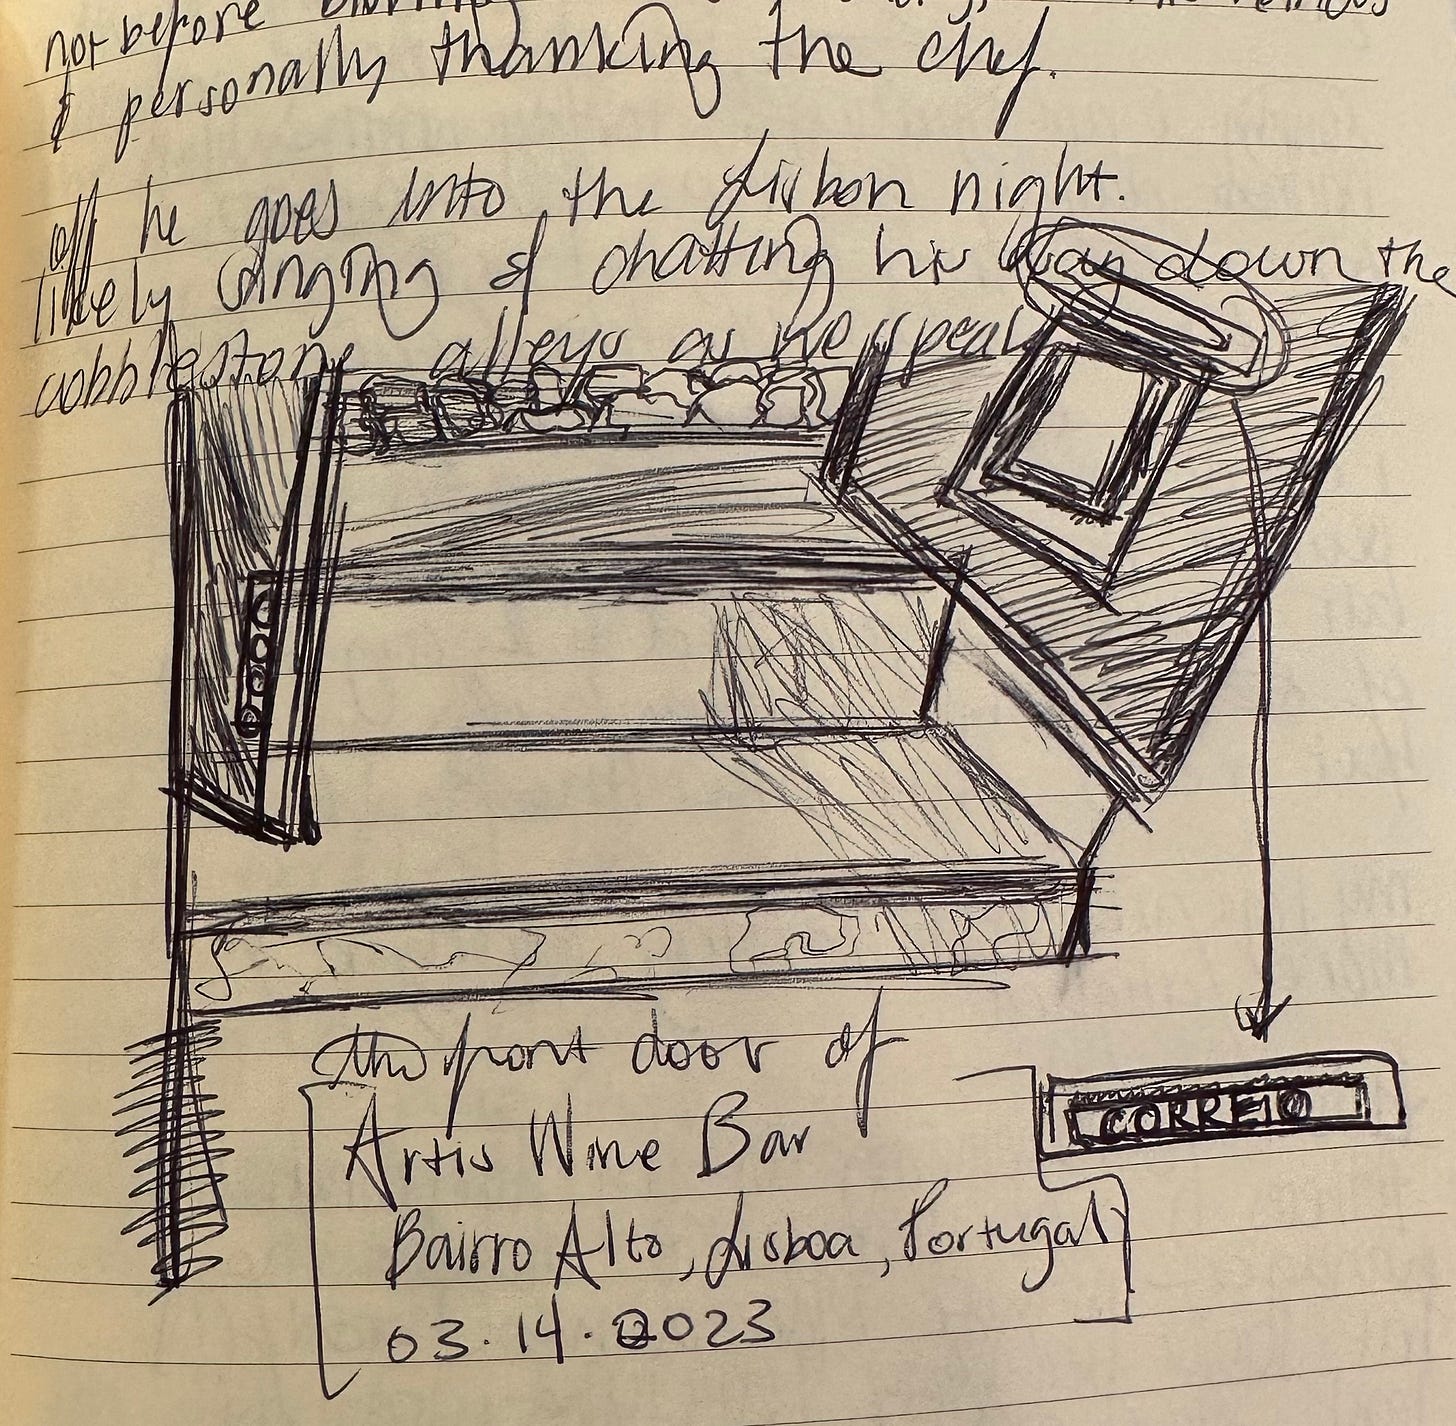 not before
& personally thanking the chef.
off he goes into the Lisbon night.
likely singing & chatting his way down the
cobblestone alleys as we speak
the front door of
Artis Wine Bar
Bairro Alto, Lisboa, Portugal
03.14.2023
CORREIO